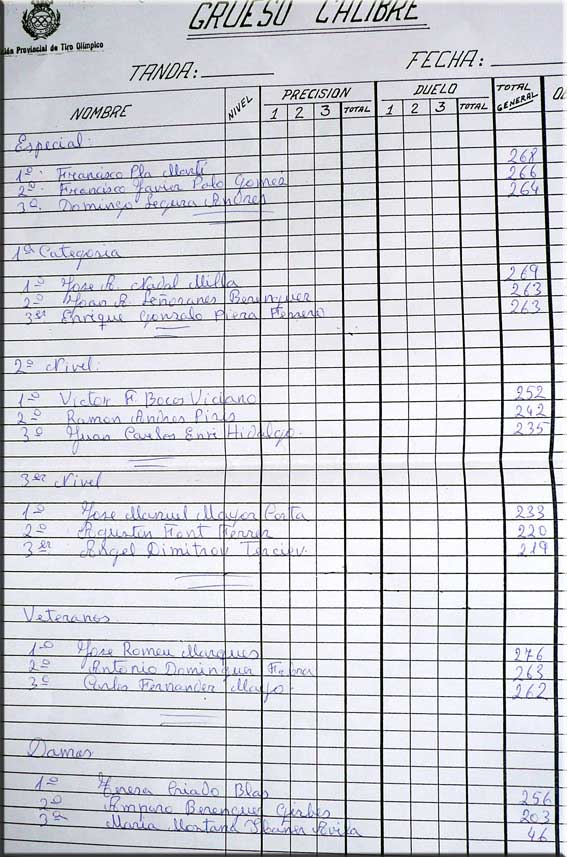 GRUESO CALIBRE
ción Provincial de Tiro Olímpico
TANDA: FECHA:
NOMBRE NIVEL PRECISION DUELO TOTAL GENERAL
1 2 3 TOTAL 1 2 3 TOTAL
Especial:
1º: Francisco Pla Martí 268
2º: Francisco Javier Polo Gomez 266
3º: Domingo Segura Andres 264
1ª Categoria
1º Jose A. Nadal Milla 269
2º Juan A. Señoranes Berenguer 263
3er Enrique Gonzalo Piera Herrero 263
2º Nivel:
1º Victor F. Bocos Viciano 252
2º Ramon Andres Piris 242
3º Juan Carlos Enri Hidalgo. 235
3er Nivel
1º Jose Manuel Mayor Costa 233
2º Agustin Font Ferrer 220
3er Angel Dimitrov Terciev. 219
Veteranos
1º Jose Romeu Marques 276
2º Antonio Dominguez 263
3º Carlos Fernandez Mayo. 262
Damas
1º Teresa Criado Blas 256
2º Amparo Berenguer 203
3ª Maria Montana Ibañez Avila 46